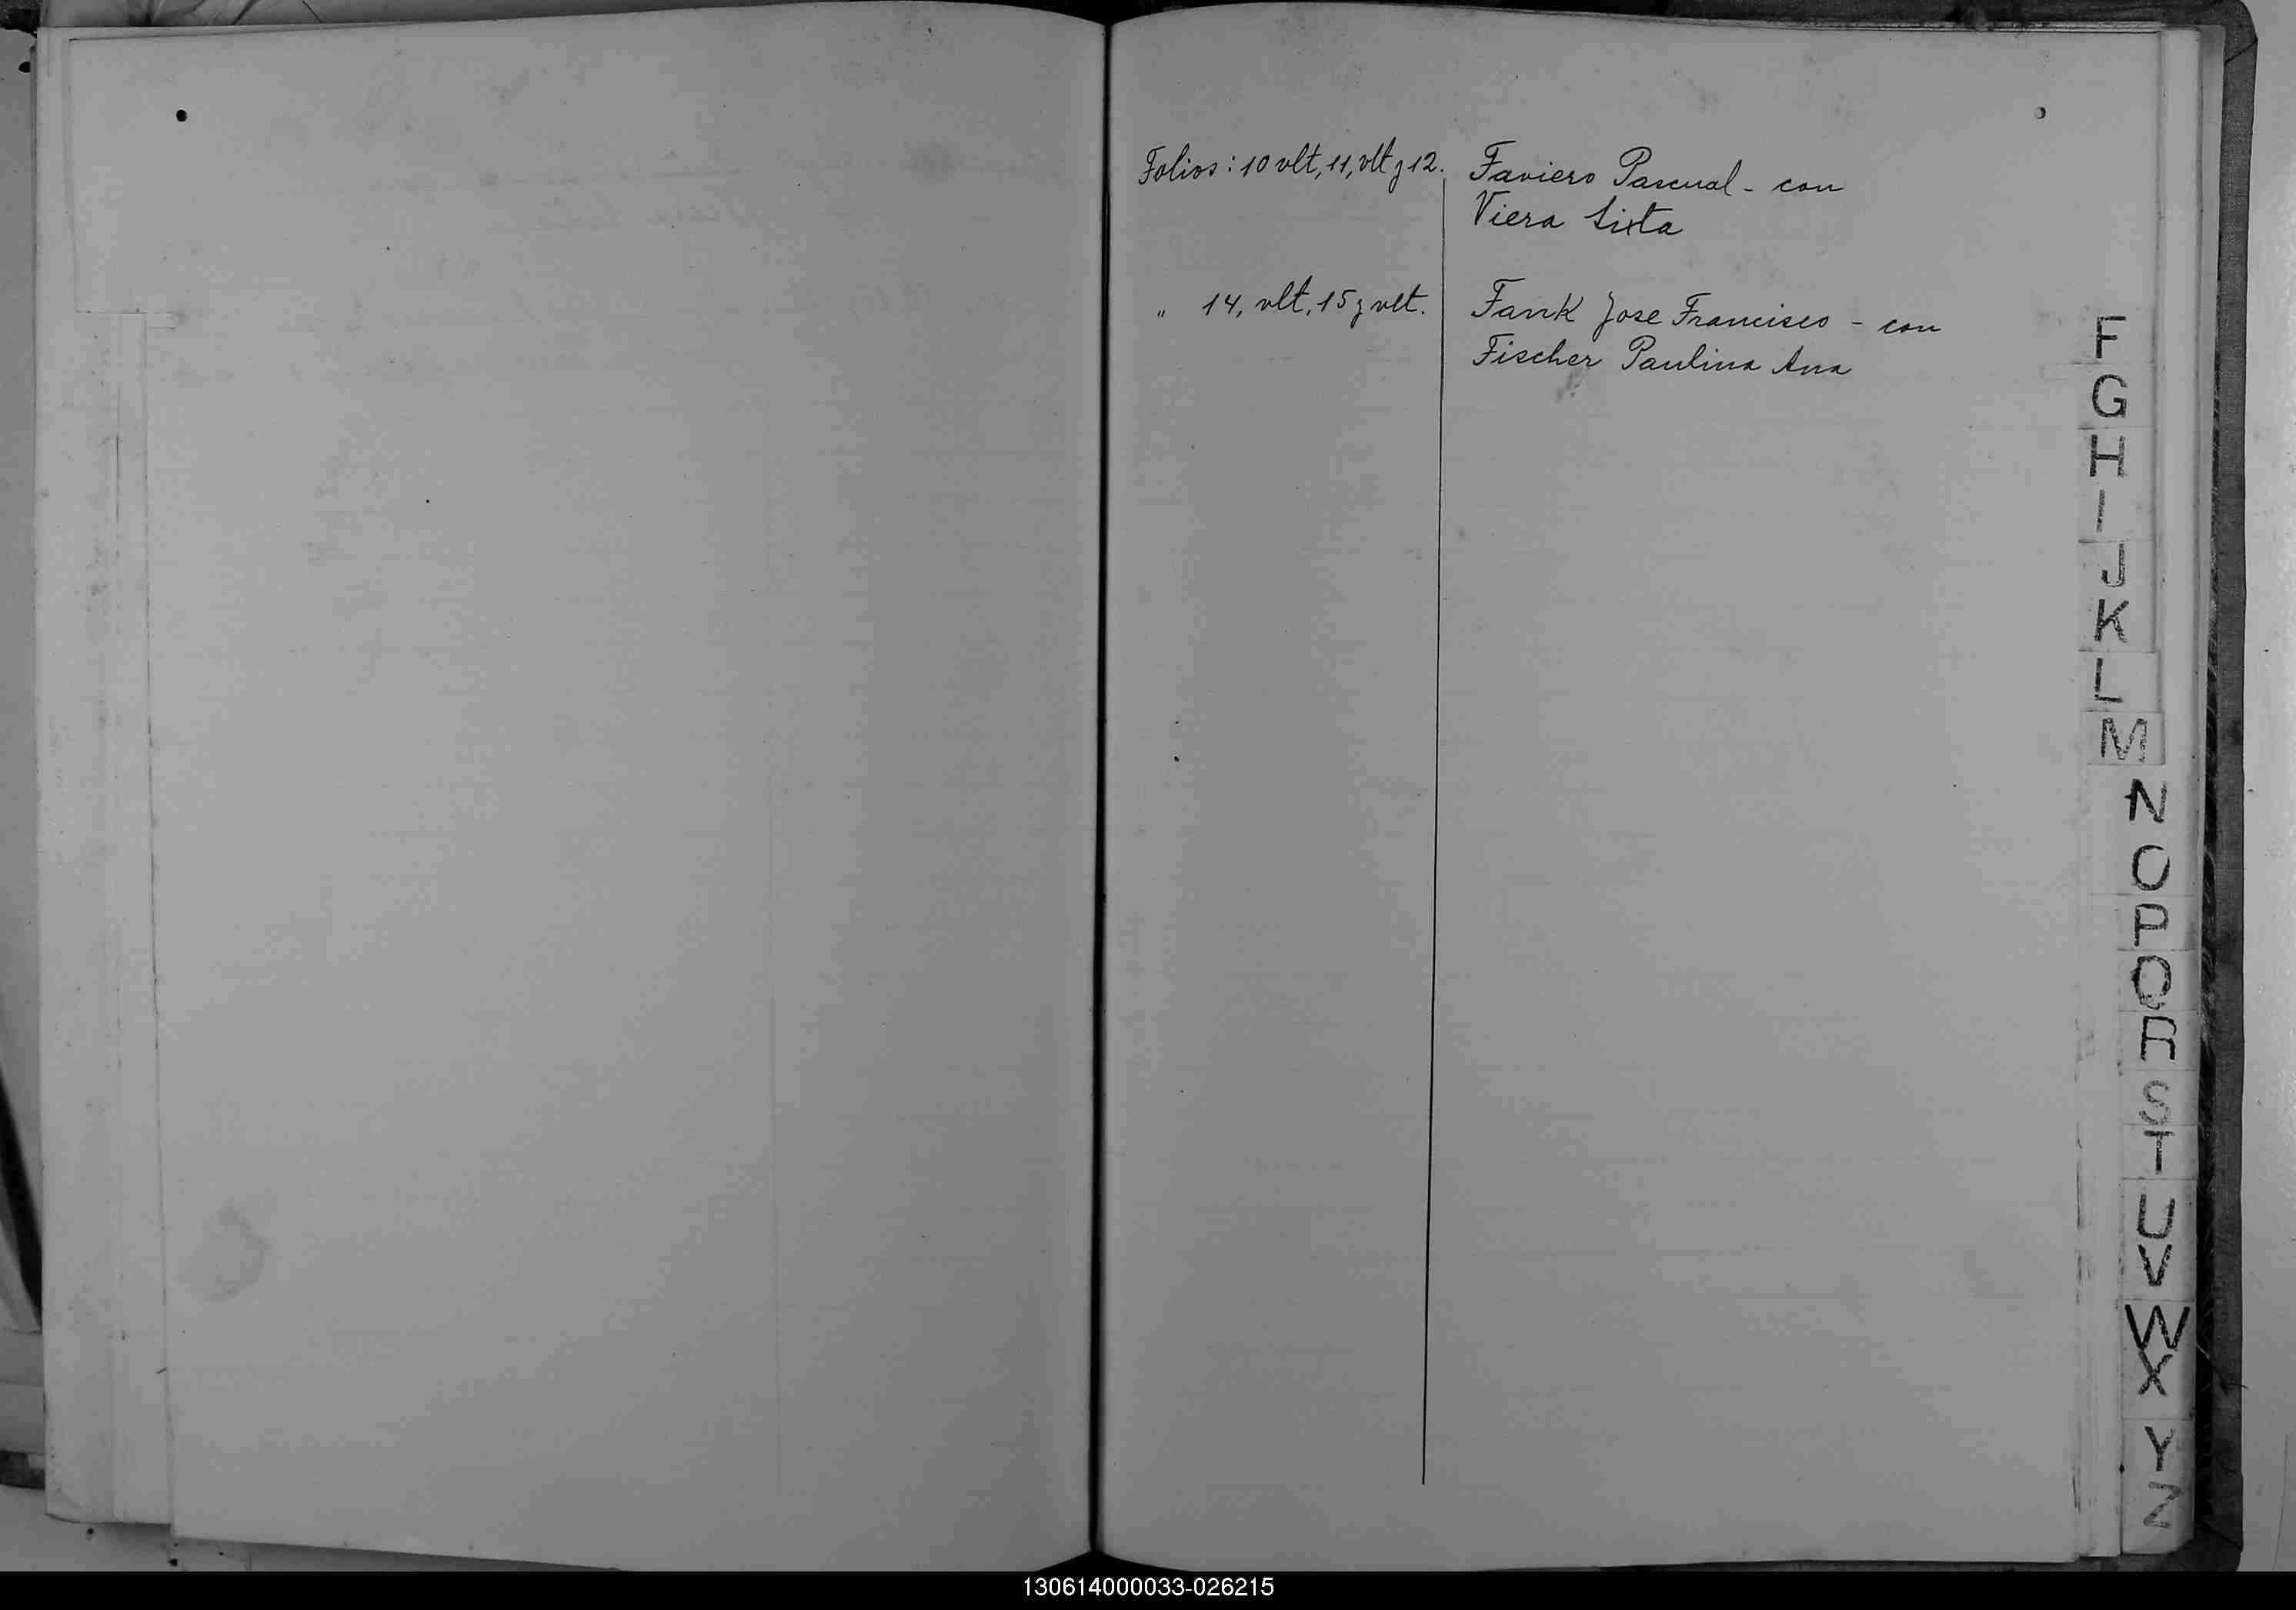 Folios: 10 vlt, 11, vlt y 12. Faviero Pascual - con
Viera Sixta
" 14, vlt, 15 y vlt. Fank Jose Francisco - con
Fischer Paulina Ana
F
G
H
I
J
K
L
M
N
O
P
Q
R
S
T
U
V
W
X
Y
Z
130614000033-026215